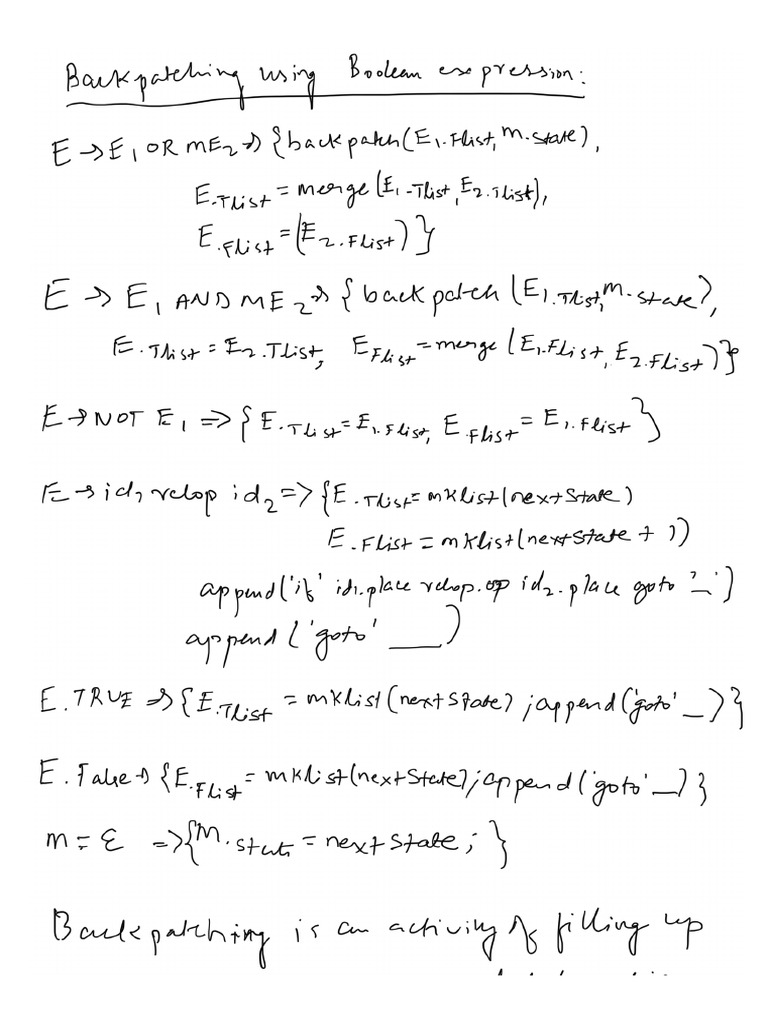 Backpatching using Boolean expression:
E → E₁ OR ME₂ → {backpatch(E₁.Flist, m.state),
E.Tlist = merge(E₁.Tlist, E₂.Tlist),
E.Flist = (E₂.Flist)}
E → E₁ AND ME₂ → {backpatch(E₁.Tlist, m.state),
E.Tlist = E₂.Tlist, E Flist = merge(E₁.Flist, E₂.Flist)}
E → NOT E₁ => {E.Tlist = E₁.Flist, E Flist = E₁.Flist}
E → id₁ relop id₂ => {E.Tlist = mklist(next State)
E.Flist = mklist(nextState + 1)
append('if' id₁.place relop.op id₂.place goto '_')
append('goto' ___)
E.TRUE → {E.Tlist = mklist(next State); append('goto' _)}
E.False → {E.Flist = mklist(nextState); append('goto' _)}
m = ε => {M.State = next State;}
Backpatching is an activity of filling up